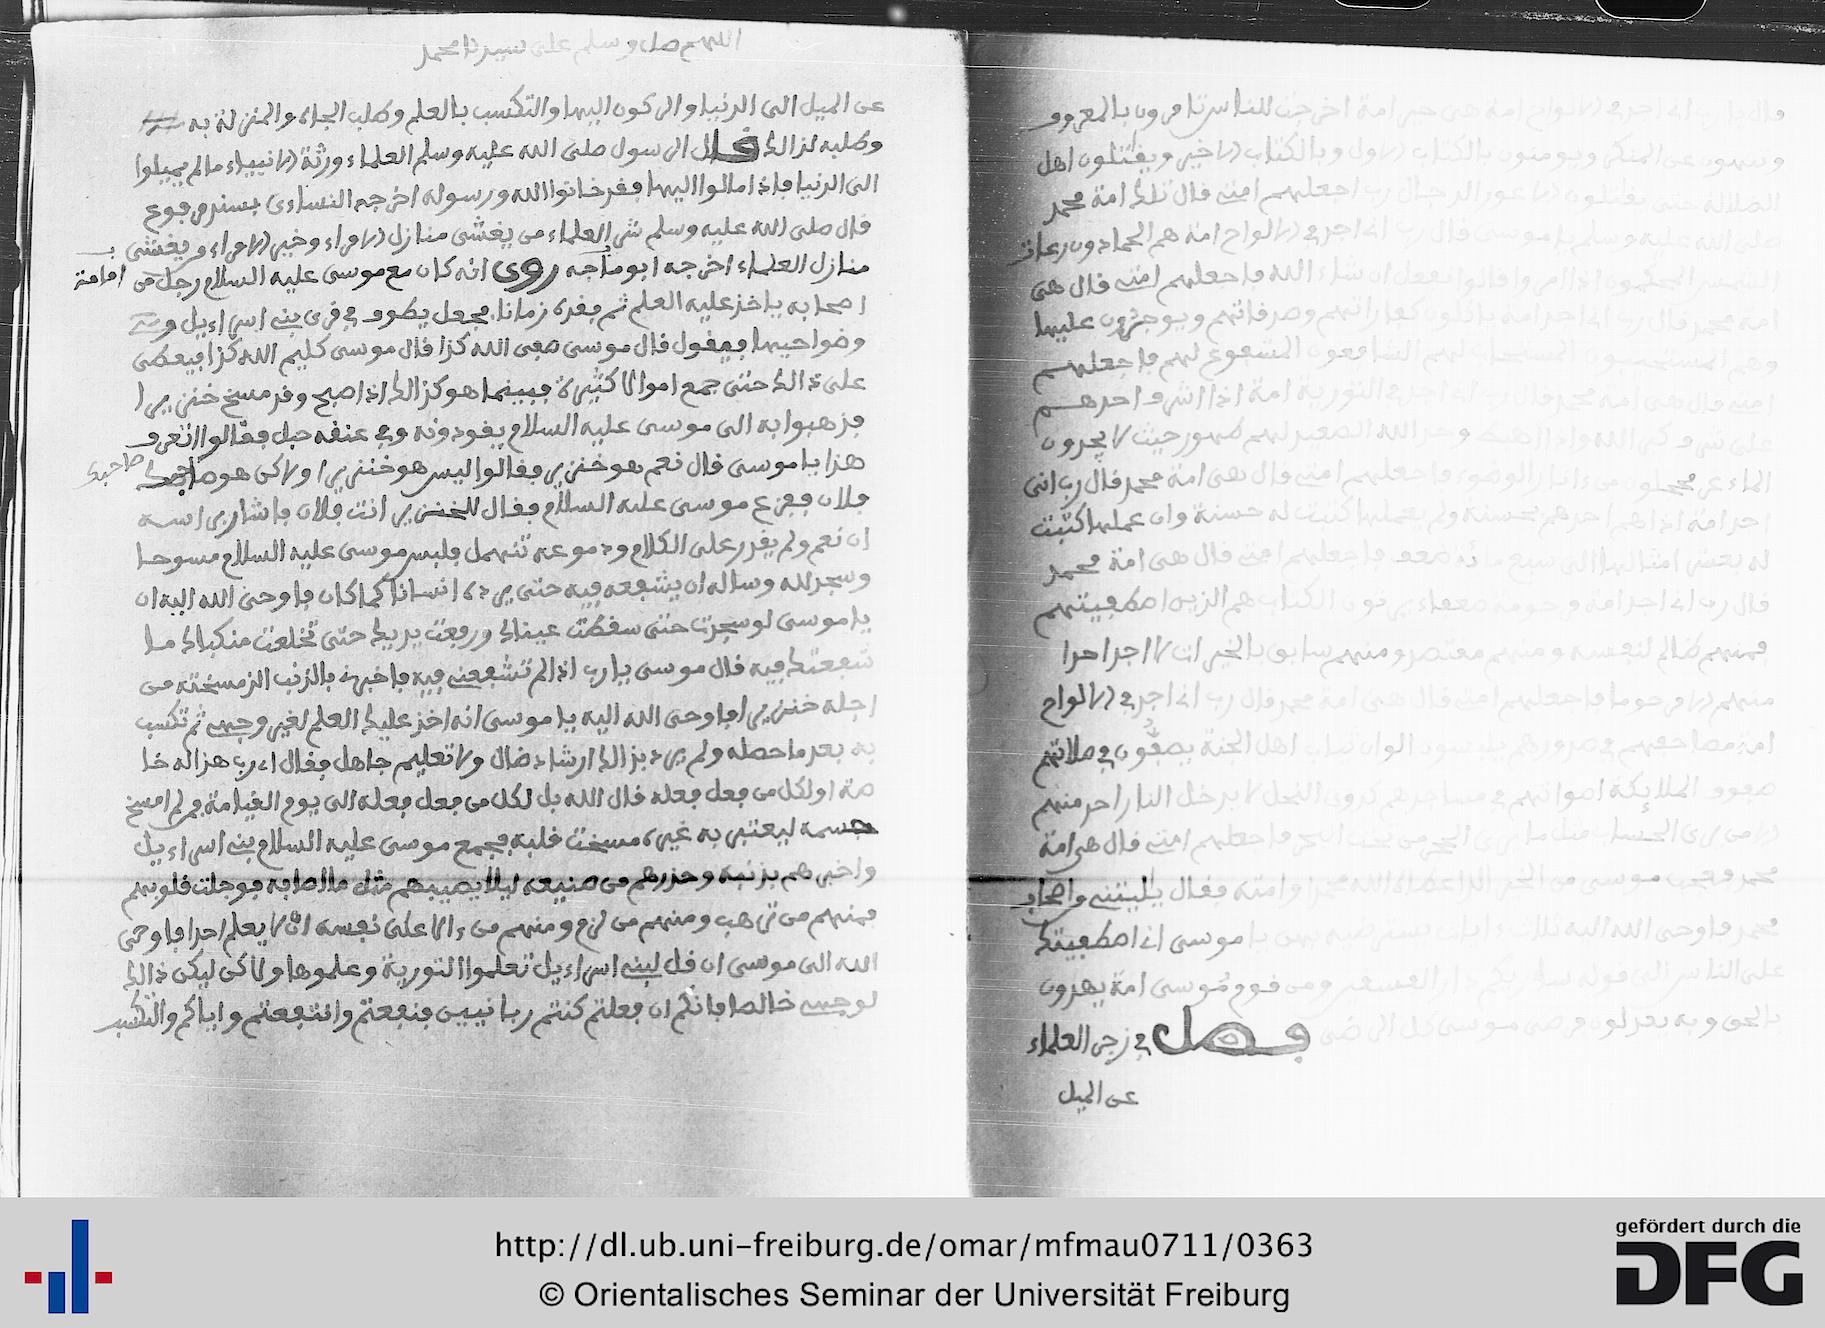 قال يارب اني اجد في الالواح امة هي خير امة اخرجت للناس تامرون بالمعروف
وينهون عن المنكر ويومنون بالكتاب الاول وبالكتاب الاخير ويقتلون اهل
الضلالة حتى يقتلون الاعور الدجال رب اجعلهم امتي قال تلك امة محمد
صلى الله عليه وسلم يا موسى قال رب اني اجد في الالواح امة هم الحمادون رعاة
الشمس المحكمون اذا امرا قالوا نفعل ان شاء الله فاجعلهم امتي قال هي
امة محمد قال رب اني اجد امة ياكلون كفاراتهم وصدقاتهم ويوجرون عليها
وهم المستجيبون المستجاب لهم الشافعون المشفوع لهم فاجعلهم
امتي قال هي امة محمد قال رب اني اجد في التورية امة اذا اشرف احدهم
على شرف كبر الله واذا هبط وحد الله الصعيد لهم طهور حيث لا يجدون
الماء غر محجلون من ءاثار الوضوء فاجعلهم امتي قال هي امة محمد قال رب اني
اجد امة اذا هم احدهم بحسنة ولم يعملها كتبت له حسنة وان عملها كتبت
له بعشر امثالها الى سبع مائة ضعف فاجعلهم امتي قال هي امة محمد
قال رب اني اجد امة مرحومة ضعفاء يرثون الكتاب هم الذين اصطفيتهم
فمنهم ظالم لنفسه ومنهم مقتصد ومنهم سابق بالخيرات لا اجد احدا
منهم الا مرحوما فاجعلهم امتي قال هي امة محمد قال رب اني اجد في الالواح
امة مصاحفهم في صدورهم يلبسون الوان ثياب اهل الجنة يصفون في صلاتهم
صفوف الملايكة اصواتهم في مساجدهم كدوي النحل لا يدخل النار احد منهم
الا من يرى الحساب مثل ما يرى الحجر من تحت البحر فاجعلهم امتي قال هي امة
محمد فعجب موسى من الخير الذي اعطاه الله محمدا وامته فقال يليتني واصحاب
محمد فاوحى الله اليه ثلاث ءايات يسترضيه بهن يا موسى اني اصطفيتك
على الناس الى قوله ساريكم دار الفسقين ومن قوم موسى امة يهدون
بالحق وبه يعدلون فرضي موسى كل الرضى فصل في زجر العلماء
عن الميل
اللهم صل وسلم على سيدنا محمد
عن الميل الى الدنيا والركون اليها والتكسب بالعلم وطلب الجاه والمنزلة به
وطلبه لذالك قال الرسول صلى الله عليه وسلم العلماء ورثة الانبياء ما لم يميلوا
الى الدنيا فاذا مالوا اليها فقد خانوا الله ورسوله اخرجه النساءي بسند مرفوع
قال صلى الله عليه وسلم شر العلماء من يغشى منازل الامراء وخير الامراء من يغشى
منازل العلماء اخرجه ابو ماجه روي انه كان مع موسى عليه السلام رجل من
اصحابه ياخذ عليه العلم ثم فقده زمانا فجعل يطوف في قرى بني اسراءيل
وضواحيها فيقول قال موسى صفي الله كذا قال موسى كليم الله كذا فيعطى
على ذالك حتى جمع اموالا كثيرة فبينما هو كذالك اذ اصبح وقد مسخ خنزيرا
فذهبوا به الى موسى عليه السلام يقودونه وفي عنقه حبل فقالوا اتعرف
هذا يا موسى قال نعم هو خنزير فقالوا ليس هو خنزيرا ولاكن هو صاحبك صاحبك
فلان ففزع موسى عليه السلام فقال للخنزير انت فلان فاشار براسه
ان نعم ولم يقدر على الكلام ودموعه تنهمل فلبس موسى عليه السلام مسوحا
وسجد لله وساله ان يشفعه فيه حتى يرده انسانا كما كان فاوحى الله اليه ان
يا موسى لو سجدت حتى سقطت عيناك ورفعت يديك حتى تخلعت منكباك ما
شفعتك فيه قال موسى يا رب اذ لم تشفعني فيه فاخبرني بالذنب الذي مسخته من
اجله خنزيرا فاوحى الله اليه يا موسى انه اخذ عليك العلم لغير وجهي ثم تكسب
به بعد ما حصله ولم يرد بذالك ارشاد ضال ولا تعليم جاهل فقال اي رب هذا له خا
صة او لكل من فعل فعله قال الله بل لكل من فعل فعله الى يوم القيامة فمن لم امسخ
جسمه ليعتبر به غيره مسخت قلبه فجمع موسى عليه السلام بني اسراءيل
واخبرهم بذنبه وحذرهم من صنيعه ليلا يصيبهم مثل ما اصابه فوجلت قلوبهم
فمنهم من ترهب ومنهم من لزم ومنهم من ءالا على نفسه ان لا يعلم احدا فاوحى
الله الى موسى ان قل لبني اسراءيل تعلموا التورية وعلموها ولاكن ليكن ذالك
لوجهي خالصا فانكم ان فعلتم كنتم ربانيين فنفعتم وانتفعتم واياكم والتكسب
http://dl.ub.uni-freiburg.de/omar/mfmau0711/0363
© Orientalisches Seminar der Universität Freiburg
gefördert durch die
DFG